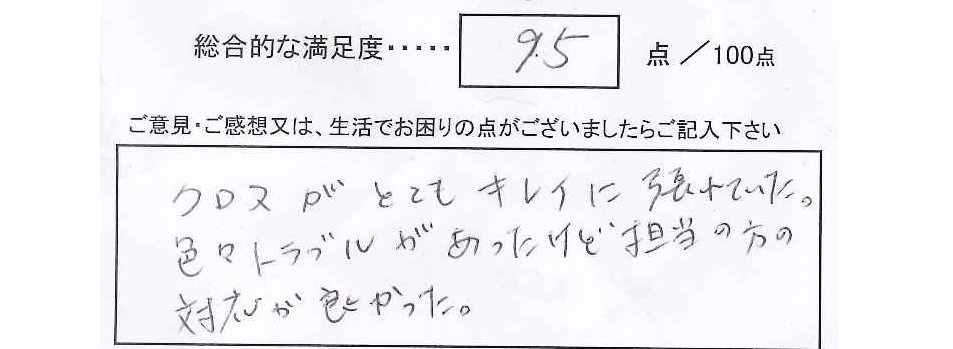 総合的な満足度・・・・・ 95 点 ／100点
ご意見・ご感想又は、生活でお困りの点がございましたらご記入下さい
クロスがとてもキレイに張れていた。
色々トラブルがあったけど担当の方の
対応が良かった。